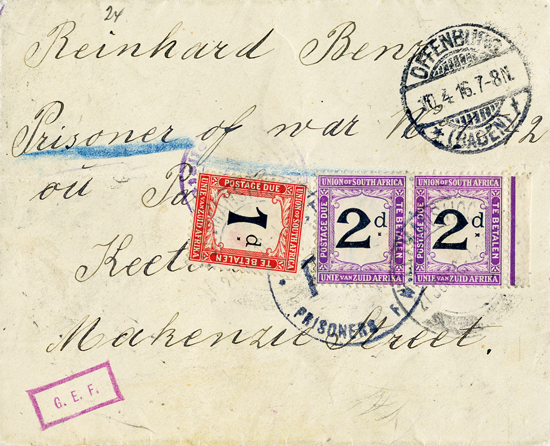 24
Reinhard Benz
OFFENBURG
10.4.16.7-8N.
* (BADEN) f
Prisoner of war No 2
ou
POSTAGE DUE
UNION OF SOUTH AFRICA
UNIE VAN ZUID AFRIKA
1d.
TE BETALEN
UNION OF SOUTH AFRICA
POSTAGE DUE
TE BETALEN
2d
UNIE VAN ZUID AFRIKA
UNION OF SOUTH AFRICA
POSTAGE DUE
TE BETALEN
2d
UNIE VAN ZUID AFRIKA
PRISONERS
Makenzie Street.
G. E. F.